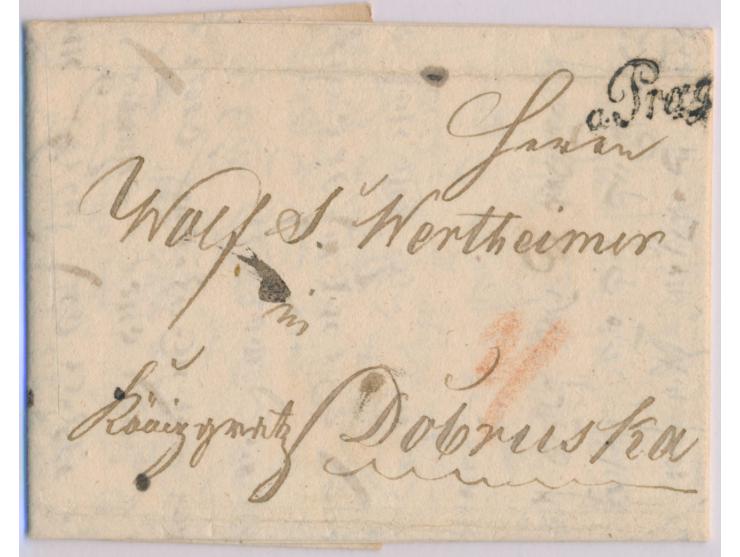 a. Prag
Herrn
Wolf S. Wertheimer
in
Königgratz Dobruska